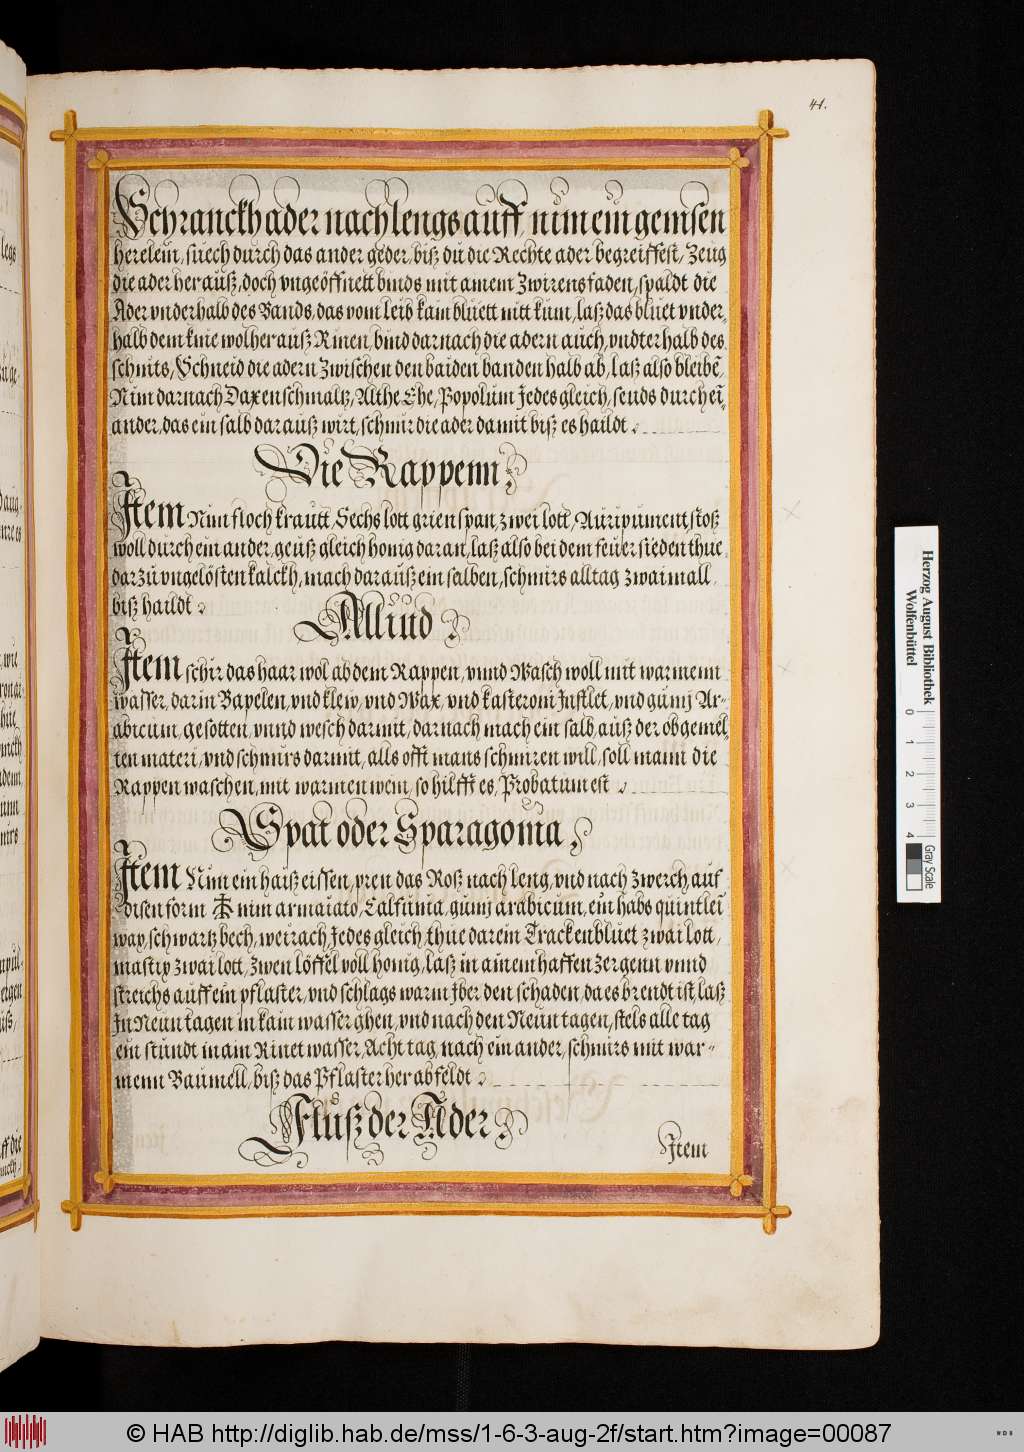 41.
Schranckhader nach lengs auff, nim ein gemsen
herelein, suech durch das ander geder, biß du die Rechte ader begreiffest, Zeug
die ader herauß, doch vngeöffnett binds mit ainem Zwirensfaden, spaldt die
Ader vnderhalb des Bands, das vom leib kain bluett nitt kum, laß das bluet vnder„
halb dem knie wol herauß Rinen, bind darnach die adern auch, vndterhalb des
schnits, Schneid die adern Zwischen den baiden banden halb ab, laß also bleibē,
Nim darnach Daxenschmaltz, Althe Ehe, Popolium Jedes gleich, seuds durch ei„
ander, das ein salb darauß wirt, schmir die ader damit biß es haildt
Die Rappenn
Item Nim floch krautt, Sechs lott grienspan, zwei lott, Auripument, stoß
woll durch ein ander, geuß gleich honig daran, laß also bei dem feuer sieden thue
darzu vngelösten kalckh, mach darauß ein salben, schmirs alltag zwaimall,
biß haildt
Alliud
Item schir das haar wol ab dem Rappen, vnnd Wasch woll mit warmenn
wasser, darin Bapelen, vnd kleiw, vnd Wax, vnd kasteroni Inslet, vnd gumj Ar„
abicum, gesotten, vnnd wesch darmit, darnach mach ein salb, auß der obgemel„
ten materi, vnd schmirs darmit, alls offt mans schmiren will, soll mann die
Rappen waschen, mit warmen wein, so hilfft es, Probatum est
Spat oder Sparagonia
Item Nim ein haiß eissen, pren das Roß nach leng, vnd nach Zwerch, auf
disen form nim armaiato, Calfunia, gumj arabicum, ein habs quintlei
wax, schwartz bech, weirach, Jedes gleich, thue darein Trackenbluet zwai lott,
mastix zwai lott, zwen löffel voll honig, laß in ainem haffen zergenn vnnd
streichs auff ein pflaster, vnd schlags warm Jber den schaden, da es brendt ist, laß
Jn Neun tagen in kain wasser ghen, vnd nach den Neun tagen, stels alle tag
ein stundt in ain Rinet wasser, Acht tag, nach ein ander, schmirs mit war„
menn Baumell, biß das Pflaster herabfeldt
Fluß der Ader
Item
Herzog August Bibliothek
Wolfenbüttel
0 1 2 3 4
Gray Scale
© HAB http://diglib.hab.de/mss/1-6-3-aug-2f/start.htm?image=00087